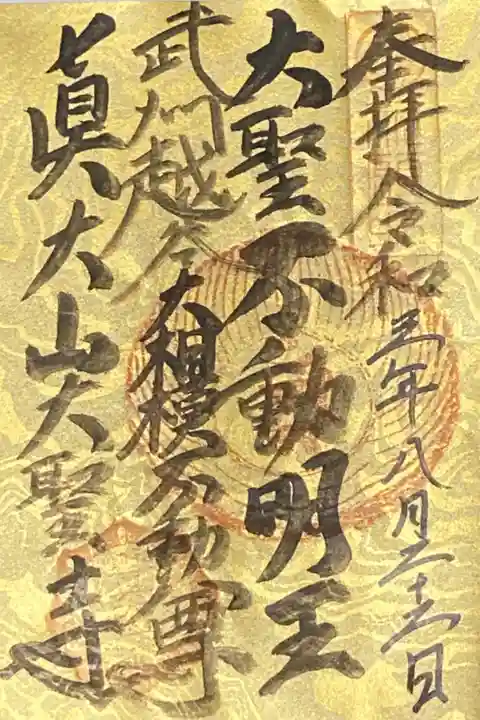 奉拝 令和三年八月二十六日
大聖不動明王
武州越谷大相模不動尊
眞大山大聖寺